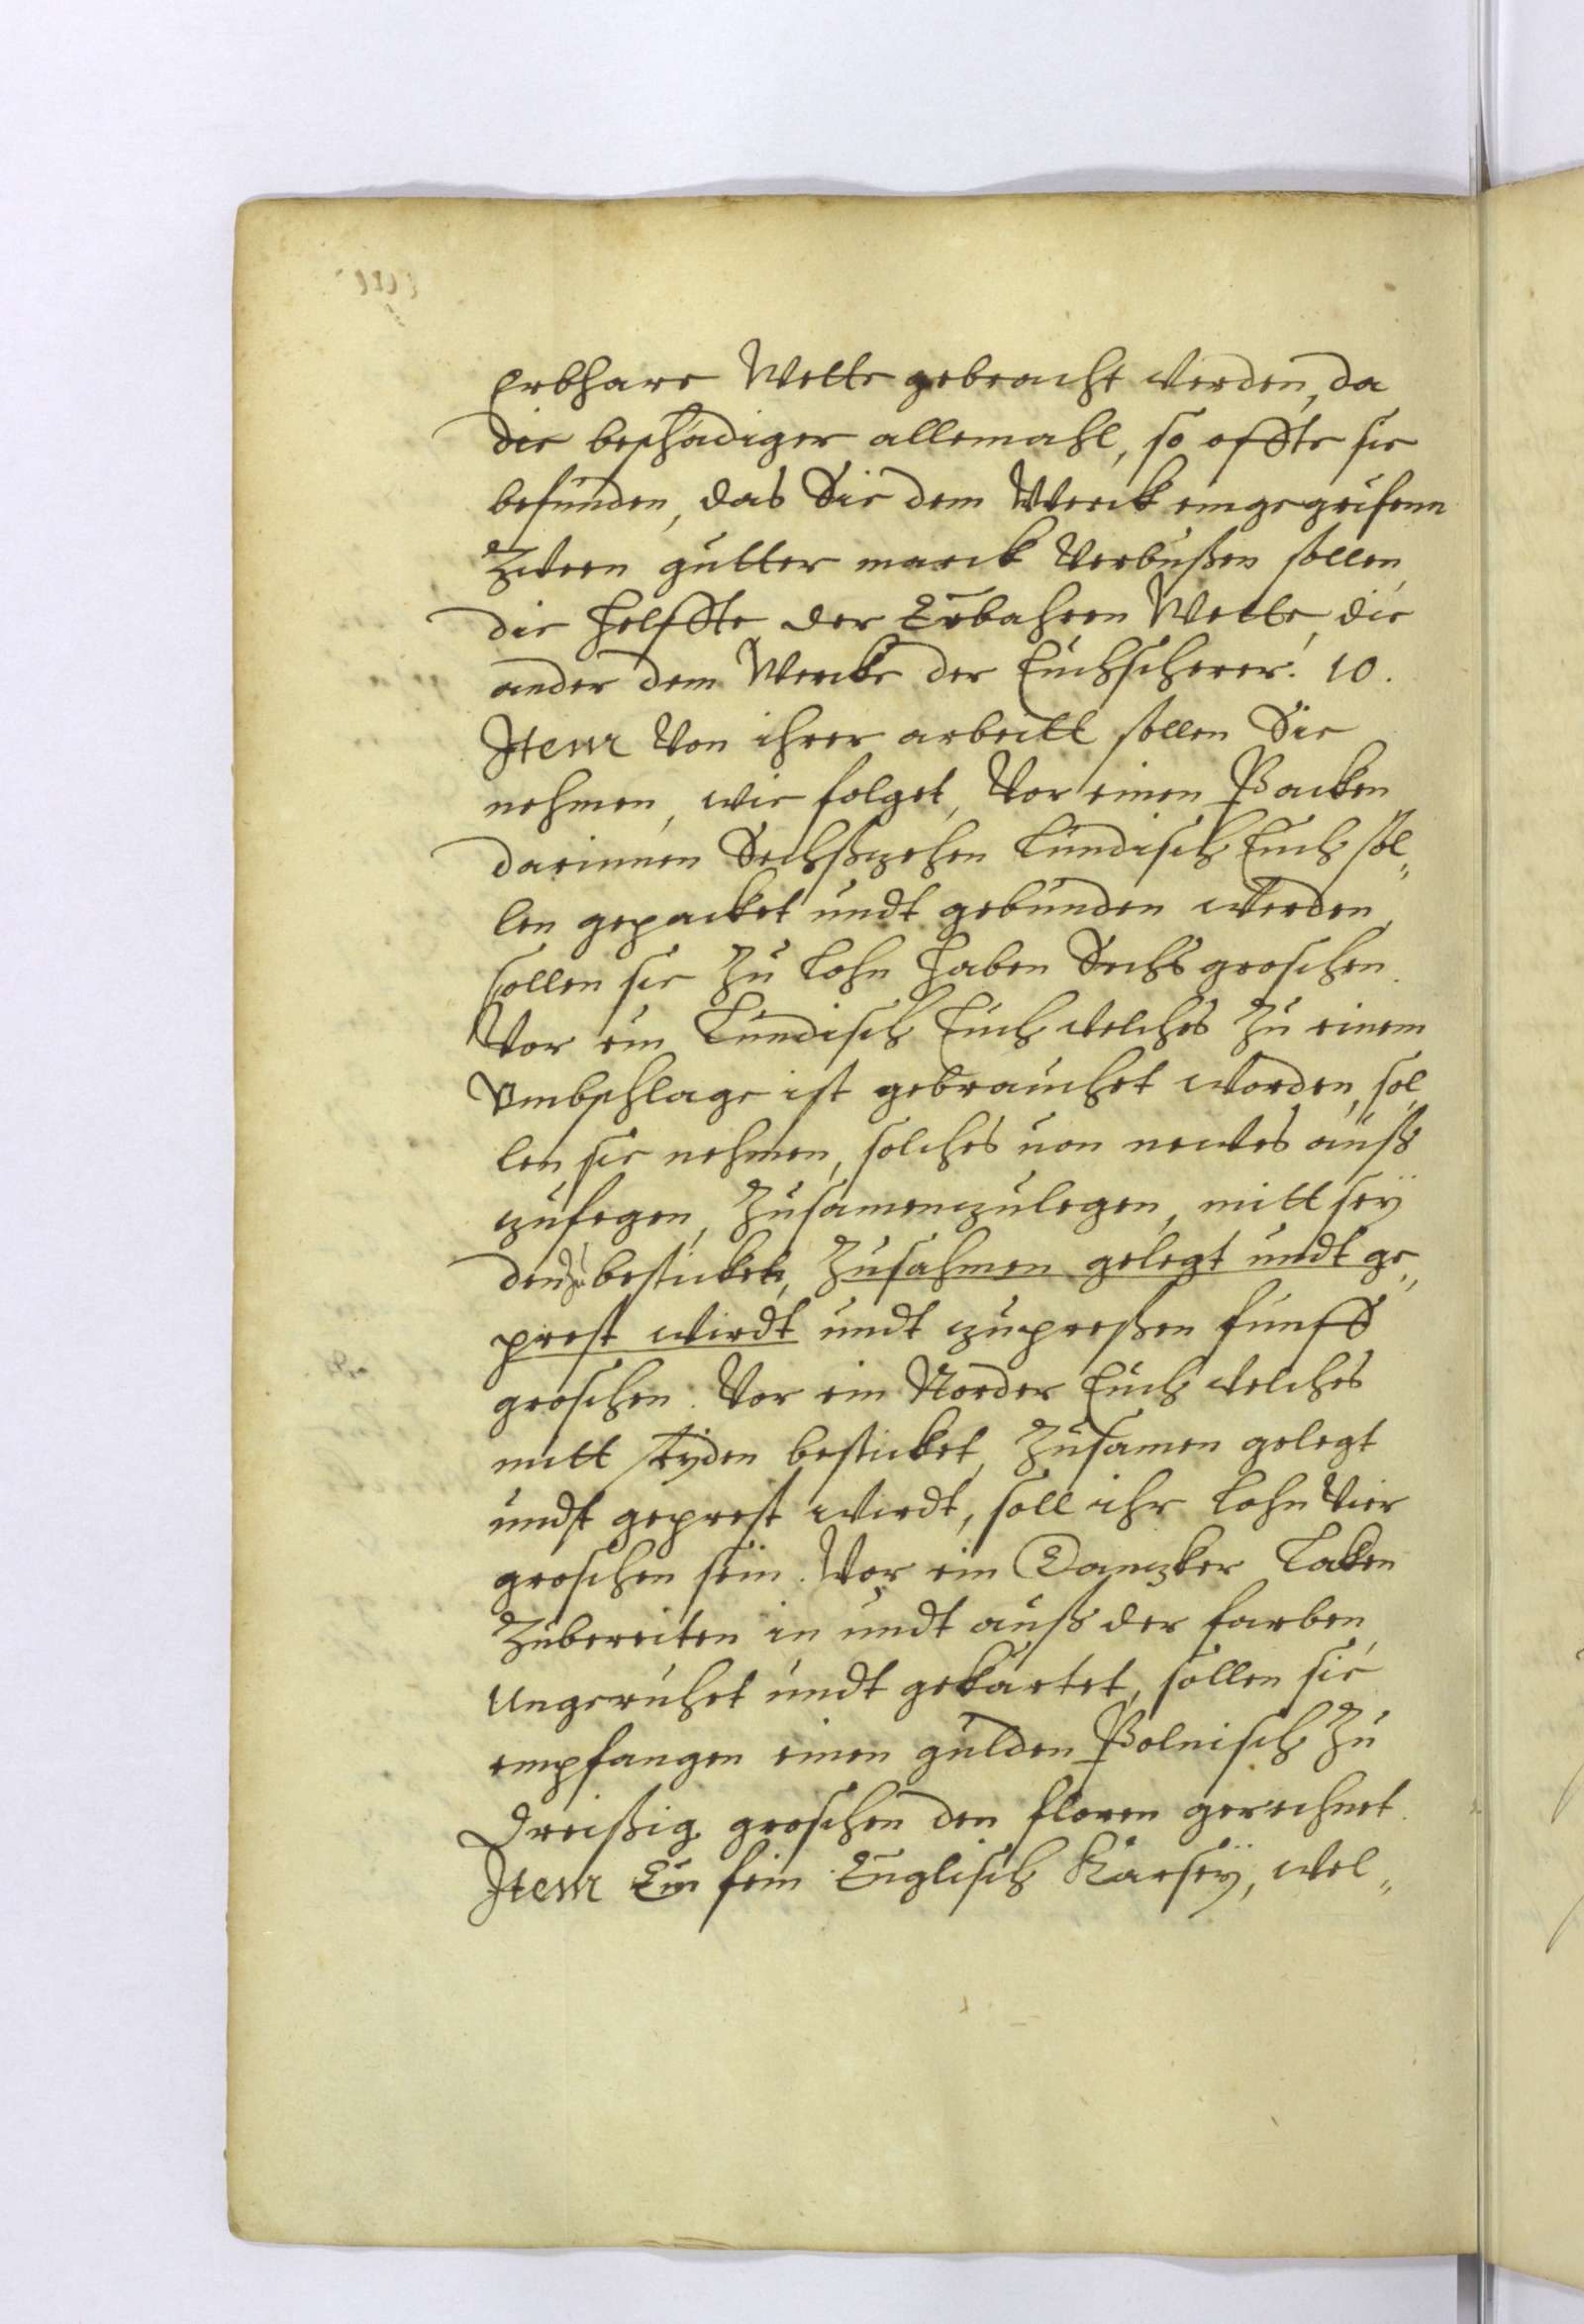 Erbhare Wette gebracht werden, da
die beschädiger allemahl, so offte sie
befunden, das Sie dem Werck eingegrifenn
Zween gutter marck Verbußen sollen,
die helffte der Erbahren Wette, die
ander dem Wercke der Tuchscherer. 10.
Item Von ihrer arbeitt sollen Sie
nehmen, wie folget, Vor einen Packen
darinnen Sechßzehen Lundisch Tuch sol„
len gepacket undt gebunden werden,
sollen sie Zu Lohn haben Sechs groschen.
Vor ein Lundisch Tuch welches Zu einem
Vmbschlage ist gebrauchet worden, sol
len sie nehmen, solches von newes auß
zufegen, Zusamenzulegen, mitt sey
den zu besticken, Zusahmen gelegt undt ge„
prest wirdt undt zupreßen funff
groschen. Vor ein Norder Tuch welches
mitt seyden besticket, Zusamen gelegt
undt geprest wirdt, soll ihr Lohn Vier
groschen sein. Vor ein Dantzker Laken
Zubereiten in undt auß der farben,
Ungeruhet undt gekartet, sollen sie
empfangen einen gulden Polnisch Zu
Dreißig groschen den floren gerechnet.
Item Ein fein Englisch Karsey, wel„